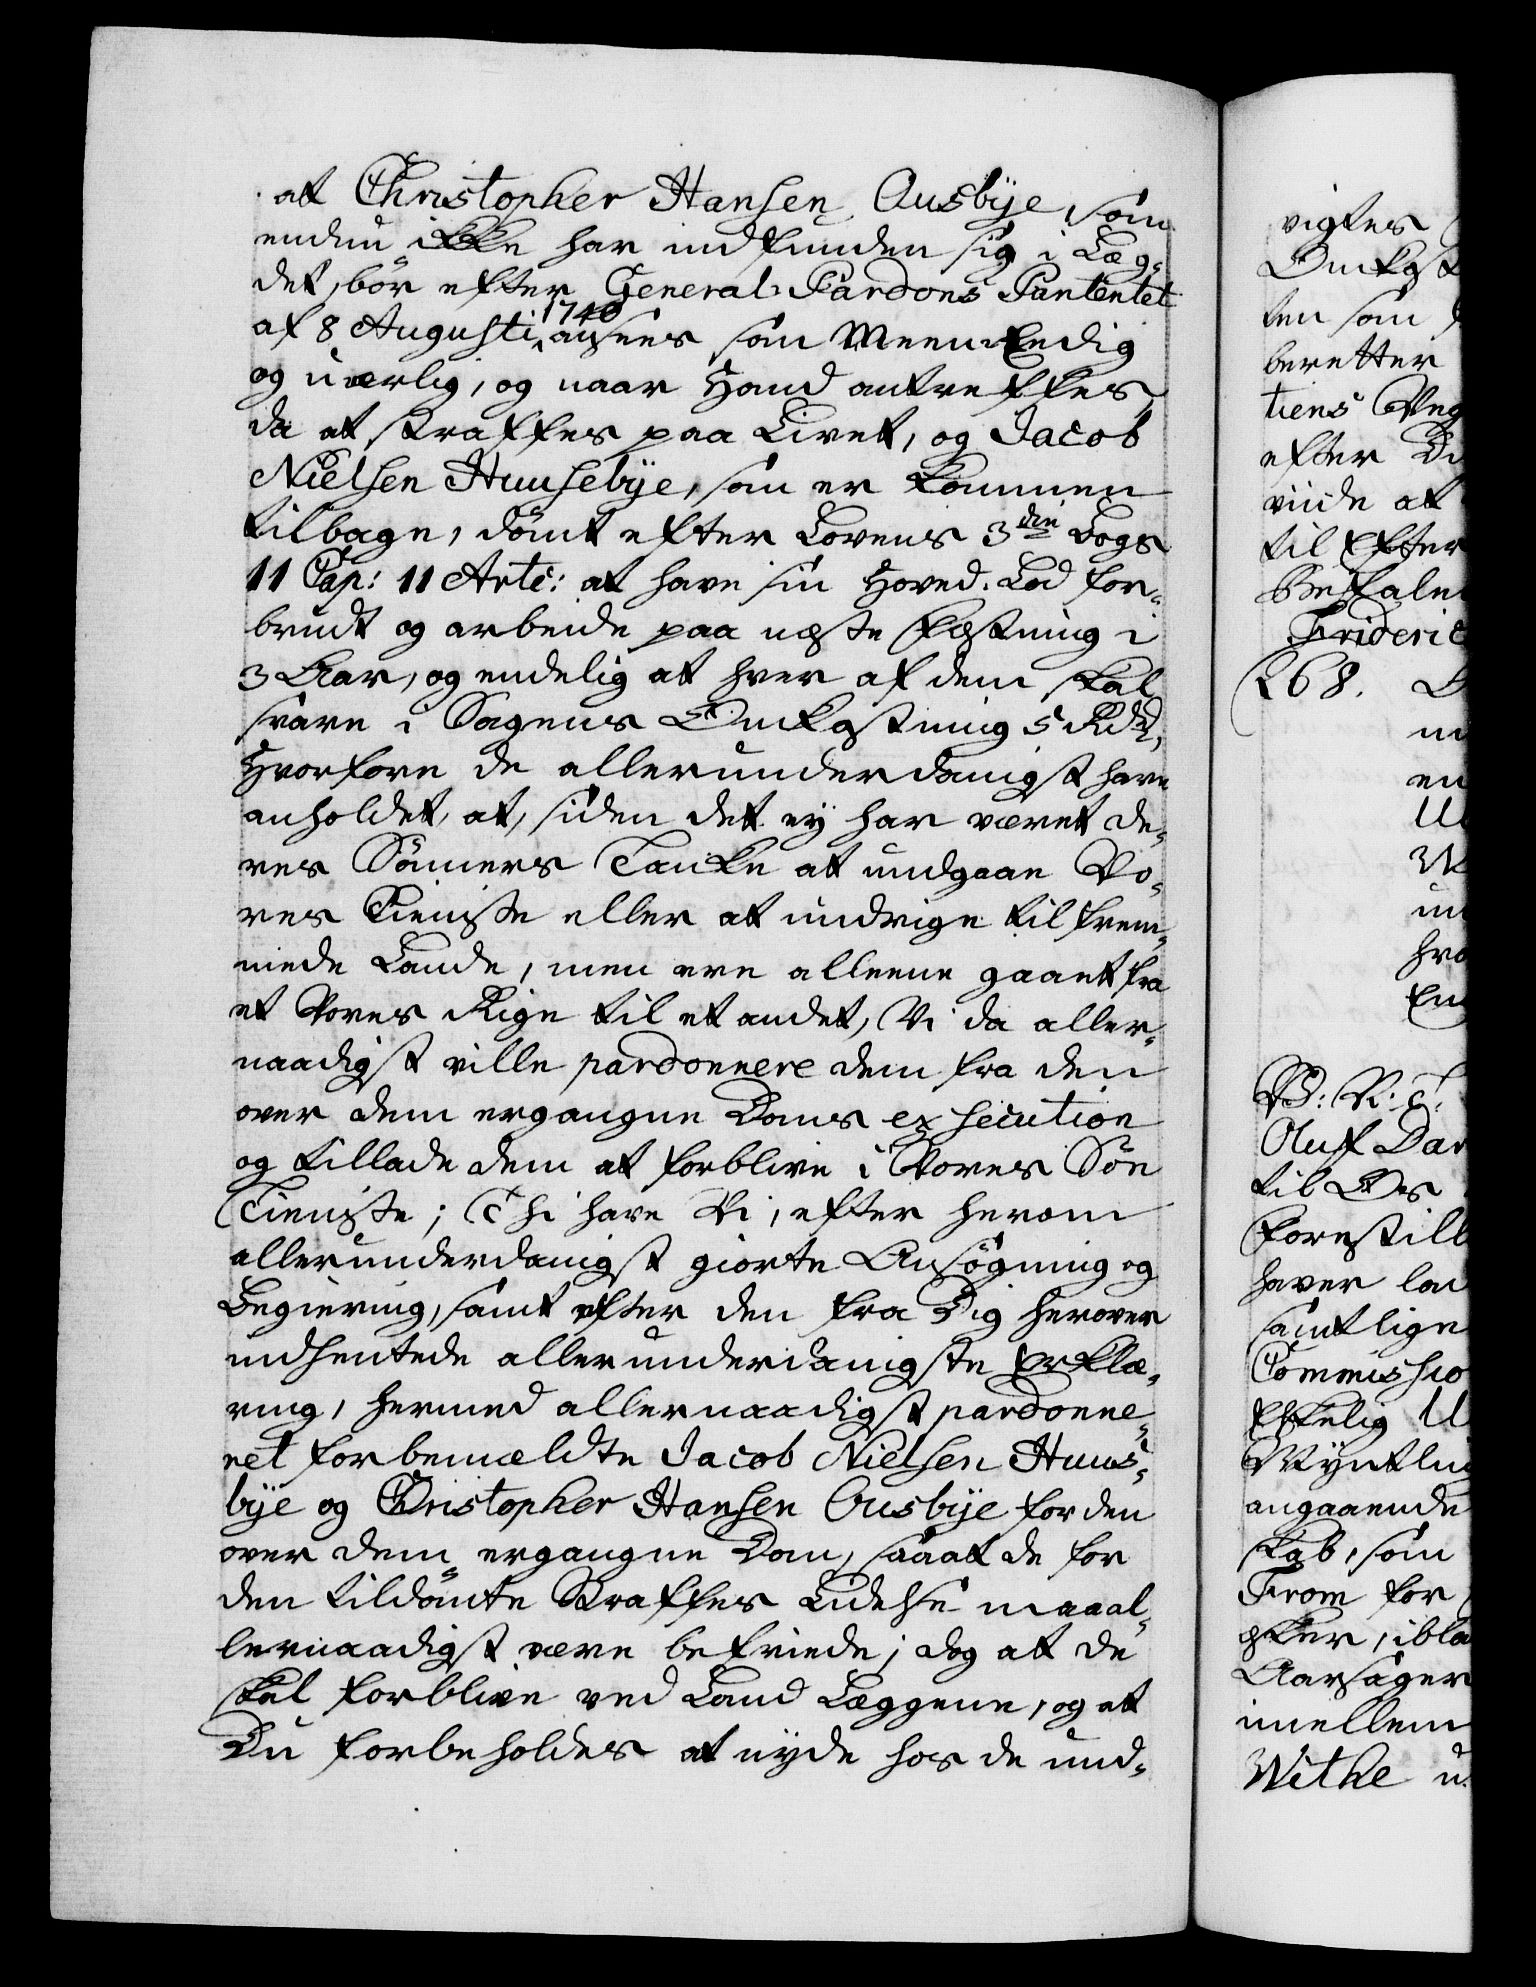 at Christopher Hansen Ousbÿe, som
endnu ikke har indfunden sig i Læg-
det, bör efter General-Pardons Pantentet
af 8 Augusti 1740 ansees som Meeneedig
og uærlig, og naar Hand antreffes,
da at straffes paa Livet, og Jacob
Nielsen Huusebÿe, som er kommen
tilbage, dömt efter Lovens 3die Bogs
11 Cap: 11 Artc: at have sin Hoved-Lod for-
brudt og arbeide paa næste Fæstning i
3 Aar, og endelig at hver af dem skal
svare i Sagens Omkostning 5 Rdl,
Hvorfore de allerunderdanigst have
anholdet, at, siden det ey har været de-
res Sönners Tancke at undgaae Vo-
res Tieniste eller at undvige til frem-
mede Lande, men ere alleene gaaet fra
et Vores Rige til et andet, Vi da aller-
naadigst ville pardonnere dem fra den
over dem ergangne Doms execution
og tillade dem at forblive i Vores Söe
Tieniste; Thi have Vi, efter herom
allerunderdanigst giorte Ansögning og
Begiering, samt efter den fra Dig herover
indhentede allerunderdanigste Erklæ-
ring, hermed allernaadigst pardonne-
ret forbemældte Jacob Nielsen Huus-
bÿe og Christopher Hansen Ousbÿe for den
over dem ergangne Dom, saa at de for
den tildömte Straffes Lidelse maa al-
lernaadigst være befriede; dog at de
skal forblive ved Land Læggene, og at
Du forbeholdes at nÿde hos de und-
vigtes
Omkost
ten som
beretter
tiens Veg
efter D
viide at
til Efter
Befale
Frideric
268.
en
hvo
Oluf Dar
til Os
forestill
haver lad
samtlige
Commissio
angaaende
skab, som
From for
Aarsager
imellem
Withe